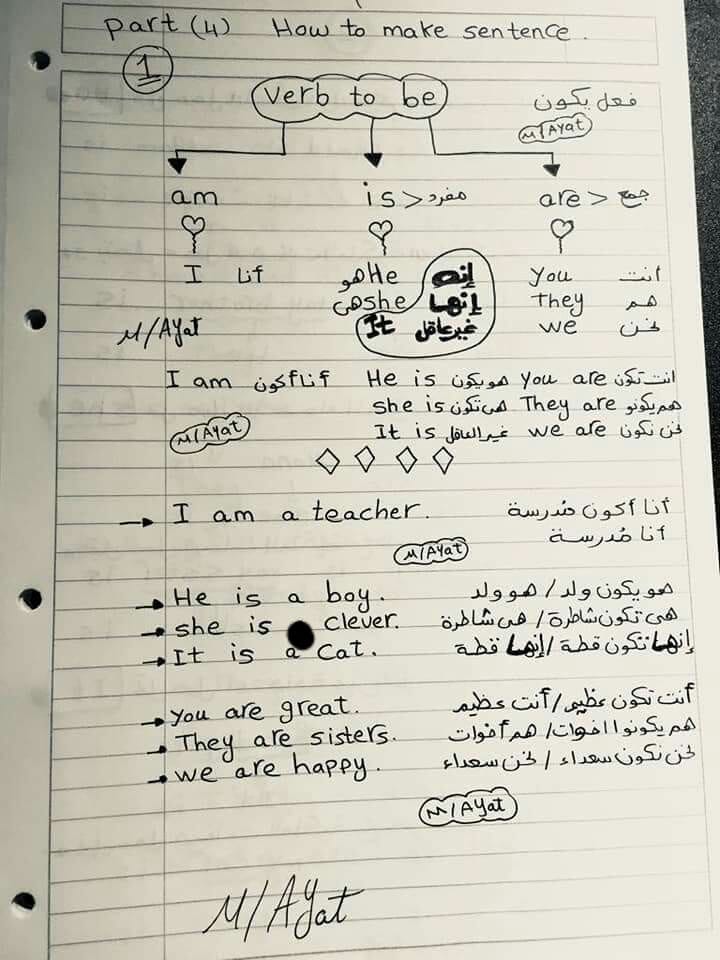 part (4) How to make sentence.
1
verb to be فعل يكون
M/Ayat
am is > مفرد are > جمع
I أنا هو He إنه you انت
هى she إنها they هم
It غير عاقل we نحن
M/Ayat
I am أنا أكون He is هو يكون you are انت تكون
she is هى تكون They are هم يكونو
It is غير العاقل we are نحن نكون
M/Ayat
I am a teacher. أنا أكون مُدرسة
أنا مُدرسة
M/Ayat
He is a boy. هو يكون ولد / هو ولد
she is clever. هى تكون شاطرة / هى شاطرة
It is a cat. إنها تكون قطة / إنها قطة
you are great. أنت تكون عظيم / أنت عظيم
They are sisters. هم يكونوا اخوات / هم أخوات
we are happy. نحن نكون سعداء / نحن سعداء
M/Ayat
M/Ayat